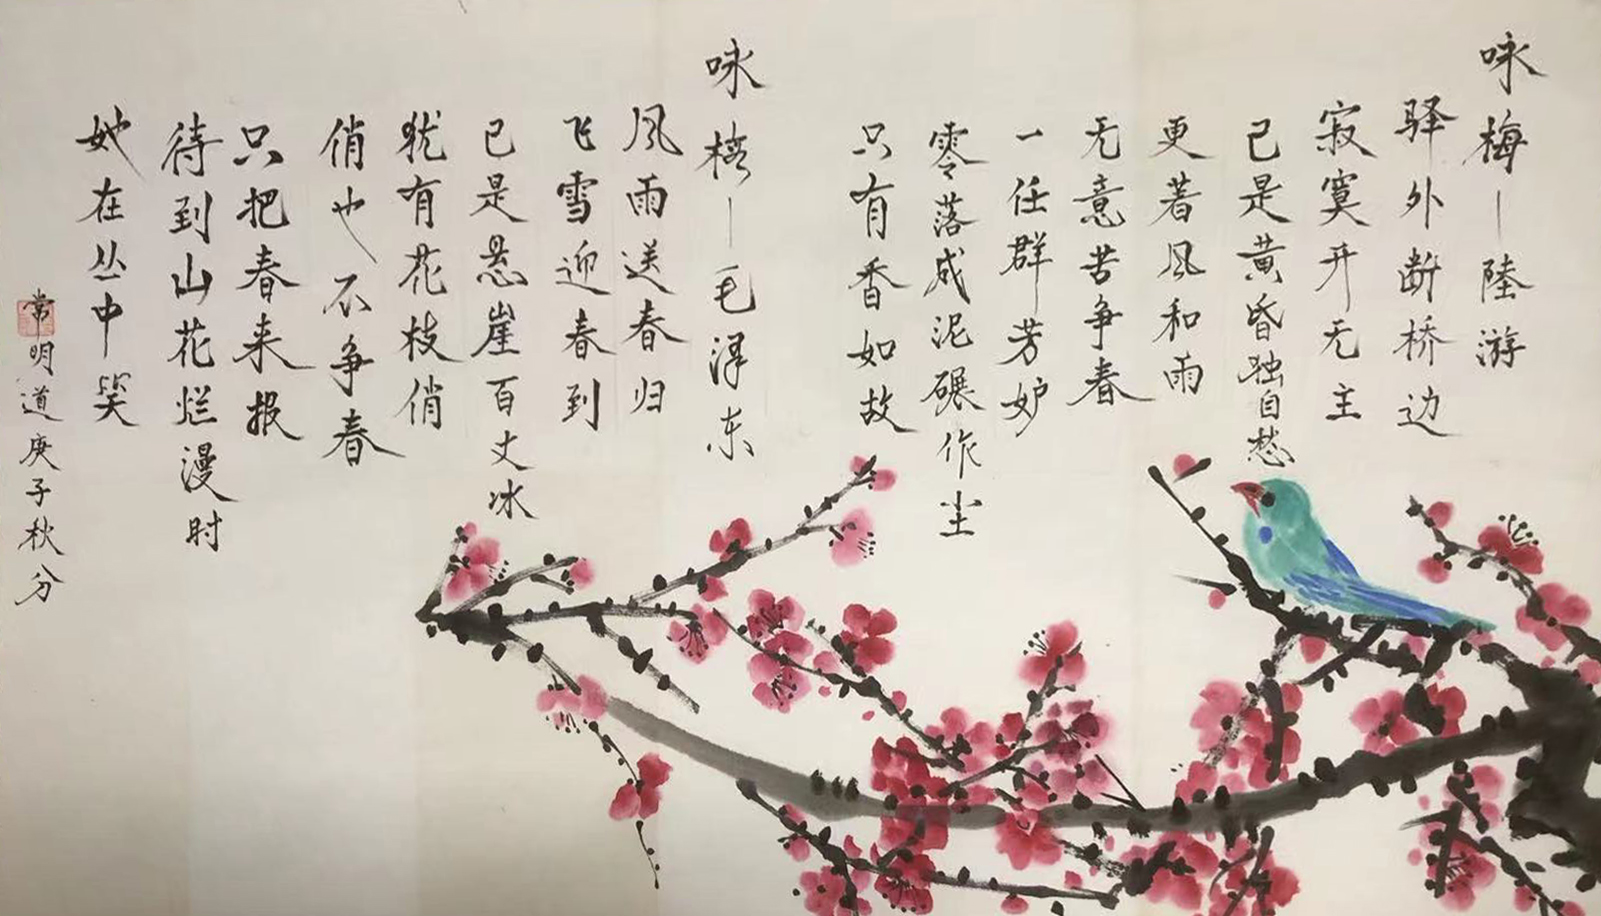 咏梅—陸游
驿外断桥边
寂寞开无主
已是黄昏独自愁
更著风和雨
无意苦争春
一任群芳妒
零落成泥碾作尘
只有香如故
咏梅—毛泽东
风雨送春归
飞雪迎春到
已是悬崖百丈冰
犹有花枝俏
俏也不争春
只把春来报
待到山花烂漫时
她在丛中笑
常明道庚子秋分